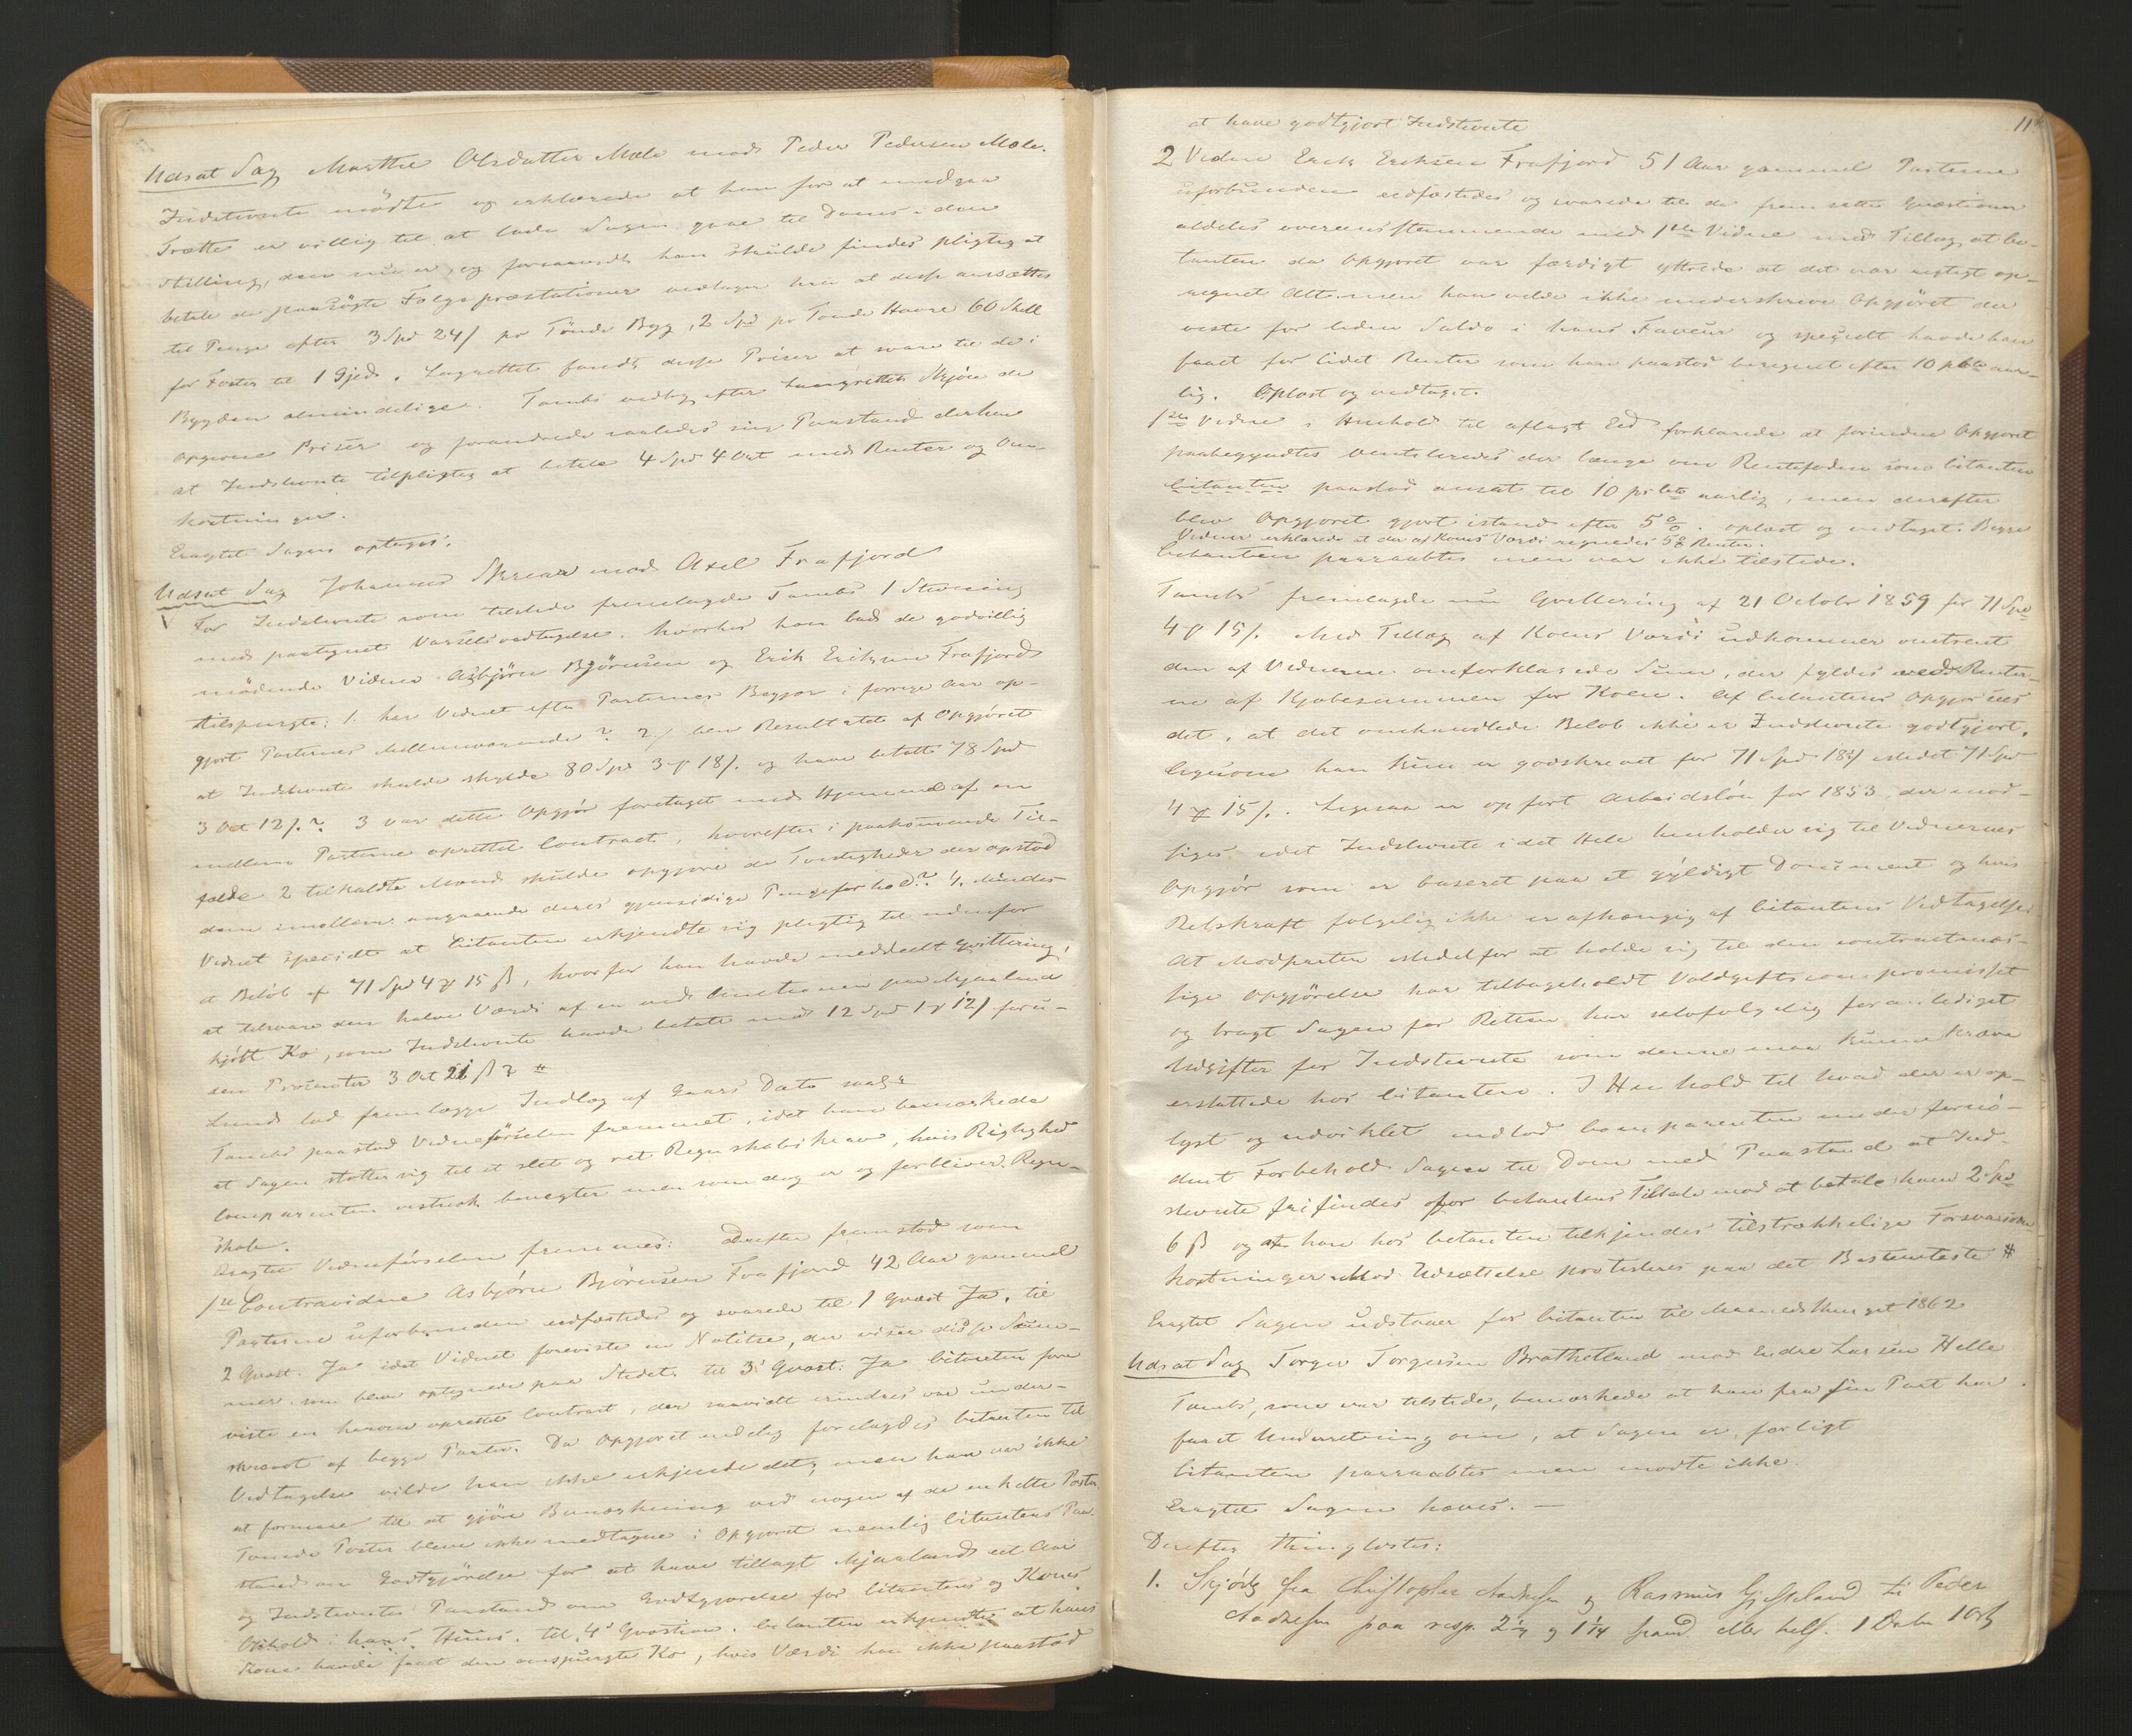 Udsat Sag Marthe Olsdatter Mæle mod Peder Pedersen Mæle.
Indstevnte mødte og erklærede at han for at undgaa
Trætte er villig til at lade Sagen gaae til Doms i den
Stilling, den nu er, og forsaavidt han skulde findes pligtig at
betale de paasøgte Følgepræstationer vedtager han at disse ansættes
til Penge efter 3 Spd 24 / pr Tønde Byg, 2 Spd pr Tønde Havre 60 Skill
for Foster til 1 Gjed. Lagrettet fandt disse Priser at svare til de i
Bygden almindelige. Tambs vedtog efter Laugrettets Skjøn de
opgivne Priser og forandrede saaledes sin Paastand derhen
at Indstevnte tilpligtes at betale 4 Spd 4 Ort med Renter og Om-
kostninger.
Eragtet Sagen optages.
Udsat Sag Johannes Skreaa mod Axel Frafjord
For Indstevnte som tilstede fremlagde Tambs 1 Stevning
med paategnet Varselsvedtagelse. hvorhos han bad de godvillig
mødende Vidner Asbjörn Bjørnsen og Erik Eriksen Frafjord
tilspurgte: 1. har Vidnet efter Parternes Begjær i forrige Aar op-
gjort Parternes Mellemværende? 2/ blev Resultatet af Opgjöret
at Indstevnte skulde skylde 80 Spd 3 # 18 /. og have betalt 78 Spd
3 Ort 12 /.? 3 var dette Opgjör foretaget med Hjemmel af en
mellem Parterne oprettet Contract, hvorefter i paakommende Til-
fælde 2 tilkaldte Mænd skulde opgjøre de Tvistigheder der opstod
dem imellem angaaende deres gjensidige Pengeforhold? 4. Mindes
Vidnet specielt at Citanten erkjendte sig pligtig til udenfor
et Beløb af 71 Spd 4 # 15 ß, hvorfor han havde meddelt Qvittering,
at tilsvare den halve Værdi af en ved Auctionen paa Mjaaland
kjöbt Ko, som Indstevnte havde betalt med 12 Spd 1 # 12 / foru-
den Procenter 3 Ort 21 ß?
Lund lod fremlægge Indlæg af Gaars Dato
Tambs paastod Vidneførselen fremmet, idet han bemærkede
at Sagen støtter sig til et slet og ret Regnskabskrav, hvis Rigtighed
Comparenten vestnok benegter men som dog er og forbliver Regn-
skab.
Eragtet Vidneførselen fremmes. Derefter fremstod som
1ste Contravidne Asbjörn Bjørnsen Frafjord 42 Aar gammel
Parterne uforbunden edfæstedes og svarede til 1 Qvæst Ja. til
2 Qvæst. Ja idet Vidnet foreviste en Notitse, der viser disse Sum-
mer som bleve optegnede paa Stedet. til 3' Qvæst: Ja Citanten fore
viste en herom oprettet Contract, der saavidt erindres var under-
skrevet af begge Parter. Da Opgjøret endelig forelagdes Citanten til
Vedtagelse vilde han ikke erkjende det, men han var ikke
at formaae til at gjöre Bemærkning ved nogen af de enkelte Poster
Tvende Poster bleve ikke medtagne i Opgjöret nemlig Citantens Paa-
stand om Godtgjørelse for at have tillagt Mjaalands eet Aar
og Indstevntes Paastand om Godtgjørelse for Citantens og Kones
Ophold i hans Huus. til 4' Qvæstion. Citanten erkjendte at hans
Kone havde faaet den omspurgte Ko, hvis Værdi han ikke paastod
11
at have godtgjort Indstevnte
2 Vidne Erik Eriksen Frafjord 51 Aar gammel Parterne
uforbunden eedfæstedes og svarede til de fremsatte Qvæstioner
aldeles overensstemmende med 1ste Vidne med Tillæg at Ci-
tanten da Opgjøret var færdigt yttrede at det var rigtigt op-
regnet Alt men han vilde ikke underskrive Opgjöret der
viste for liden Saldo i hans Faveur og specielt havde han
faaet for lidet Renter som han paastod beregnet efter 10 pCto aar-
lig. Oplæst og vedtaget.
1ste Vidne i Henhold til aflagt Eed forklarede at forinden Opgjøret
paabegyndtes ventileredes der længe om Rentefoden som Citanten
Citanten paastod ansat til 10 pCto aarlig, men derefter
blev Opgjøret gjort istand efter 5%. oplæst og vedtaget. Begge
Vidner erklærede at der af Koens Værdi regnedes 5% Renter.
Citanten paaraabtes men var ikke tilstede.
Tambs fremlagde nu Qvittering af 21 October 1859 for 71 Spd
4 # 15 /. Med Tillæg af Koens Værdi udkommer omtrent
den af Vidnerne omforklarede Sum, der fyldes ved Renter-
ne af Kjøbesummen for Koen. Af Citantens Opgjør sees
det, at det omhandlede Beløb ikke er Indstevnte godtgjort,
ligesom han kun er godskrevet for 71 Spd 18 / istedet 71 Spd
4 # 15 /. Ligesaa er opført Arbeidsløn for 1853 der mod-
siges idet Indstevnte i det Hele henholder sig til Vidnernes
Opgjør som er baseret paa et gyldigt Document og hvis
Retskraft følgelig ikke er afhængig af Citantens Vedtagelse.
At Modparten istedetfor at holde sig til den contractmæs-
sige Opgjörelse har tilbageholdt Voldgiftscompromisset
og bragt Sagen for Retten har selvfølgelig foranlediget
Udgifter for Indstevnte som denne maa kunne kræve
erstattede hos Citanten. I Henhold til hvad der er op-
lyst og udviklet indlod Comparenten under fornö-
dent Forbehold Sagen til Dom med Paastand at Ind-
stevnte frifindes for Citantens Tiltale mod at betale ham 2 Spd
6 ß og at han hos Citanten tilkjendes tilstrækkelige Forsvarsom-
kostninger. Mod Udsættelse protesteres paa det Bestemteste #
Eragtet Sagen udstaaer for Citanten til Maanedsthinget 1862
Udsat Sag Torger Torgersen Brathetland mod Endre Larsen Helle
Tambs, som var tilstede, bemærkede at han fra sin Part har
faaet Underretning om, at Sagen er forligt
Citanten paaraabtes men mødte ikke.
Eragtet Sagen hæves. —
Derefter thinglæstes:
1. Skjöde fra Christopher Aadnesen og Rasmus Gjesteland til Peder
Aadnesen paa resp. 2 1/4 og 1 1/4 Spand eller hels. 1 Daler 1 Ort